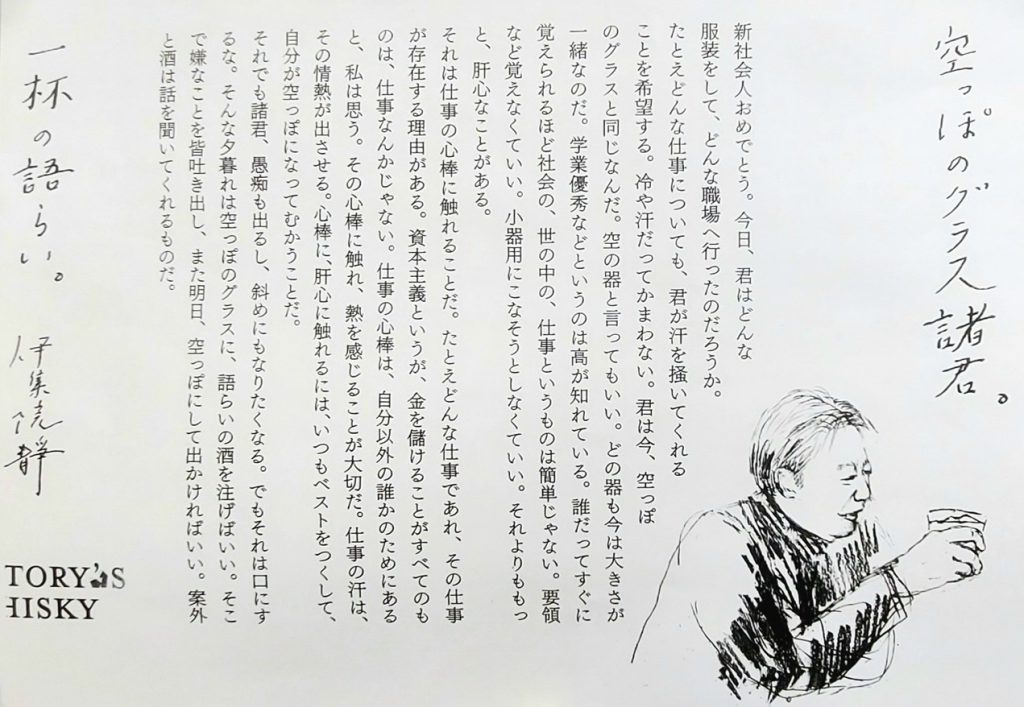 空っぽのグラス諸君。
新社会人おめでとう。今日、君はどんな
服装をして、どんな職場へ行ったのだろうか。
たとえどんな仕事についても、君が汗を掻いてくれる
ことを希望する。冷や汗だってかまわない。君は今、空っぽ
のグラスと同じなんだ。空の器と言ってもいい。どの器も今は大きさが
一緒なのだ。学業優秀などというのは高が知れている。誰だってすぐに
覚えられるほど社会の、世の中の、仕事というものは簡単じゃない。要領
など覚えなくていい。小器用にこなそうとしなくていい。それよりももっ
と、肝心なことがある。
それは仕事の心棒に触れることだ。たとえどんな仕事であれ、その仕事
が存在する理由がある。資本主義というが、金を儲けることがすべてのも
のは、仕事なんかじゃない。仕事の心棒は、自分以外の誰かのためにある
と、私は思う。その心棒に触れ、熱を感じることが大切だ。仕事の汗は、
その情熱が出させる。心棒に、肝心に触れるには、いつもベストをつくして、
自分が空っぽになってむかうことだ。
それでも諸君、愚痴も出るし、斜めにもなりたくなる。でもそれは口にす
るな。そんな夕暮れは空っぽのグラスに、語らいの酒を注げばいい。そこ
で嫌なことを皆吐き出し、また明日、空っぽにして出かければいい。案外
と酒は話を聞いてくれるものだ。
一杯の語らい。
伊集院静
TORY'S
HISKY